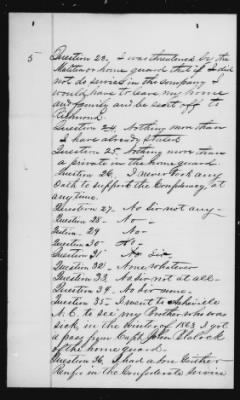 5 Question 23, I was threatened by the
Militia or home guard that if I did
not do service in the company I
would have to leave my home
and family and be sent off to
Richmond
Question 24. Nothing more than
I have already stated
Question 25. Nothing more than
a private in the home guard.
Question 26. I never took any
Oath to support the Confederacy, at
any time.
Question 27- No Sir not any-
Question 28- No -
Question 29- No -
Question 30- No -
Question 31- No Sir
Question 32- None whatever
Question 33- No Sir not at all-
Question 34- No Sir none-
Question 35- I went to Asheville
N.C. to see my Brother who was
sick, in the Winter of 1863 I got
a pass from Capt John Blalock
of the home guard.
Question 36. I had a one Brother
in the Confederate Service